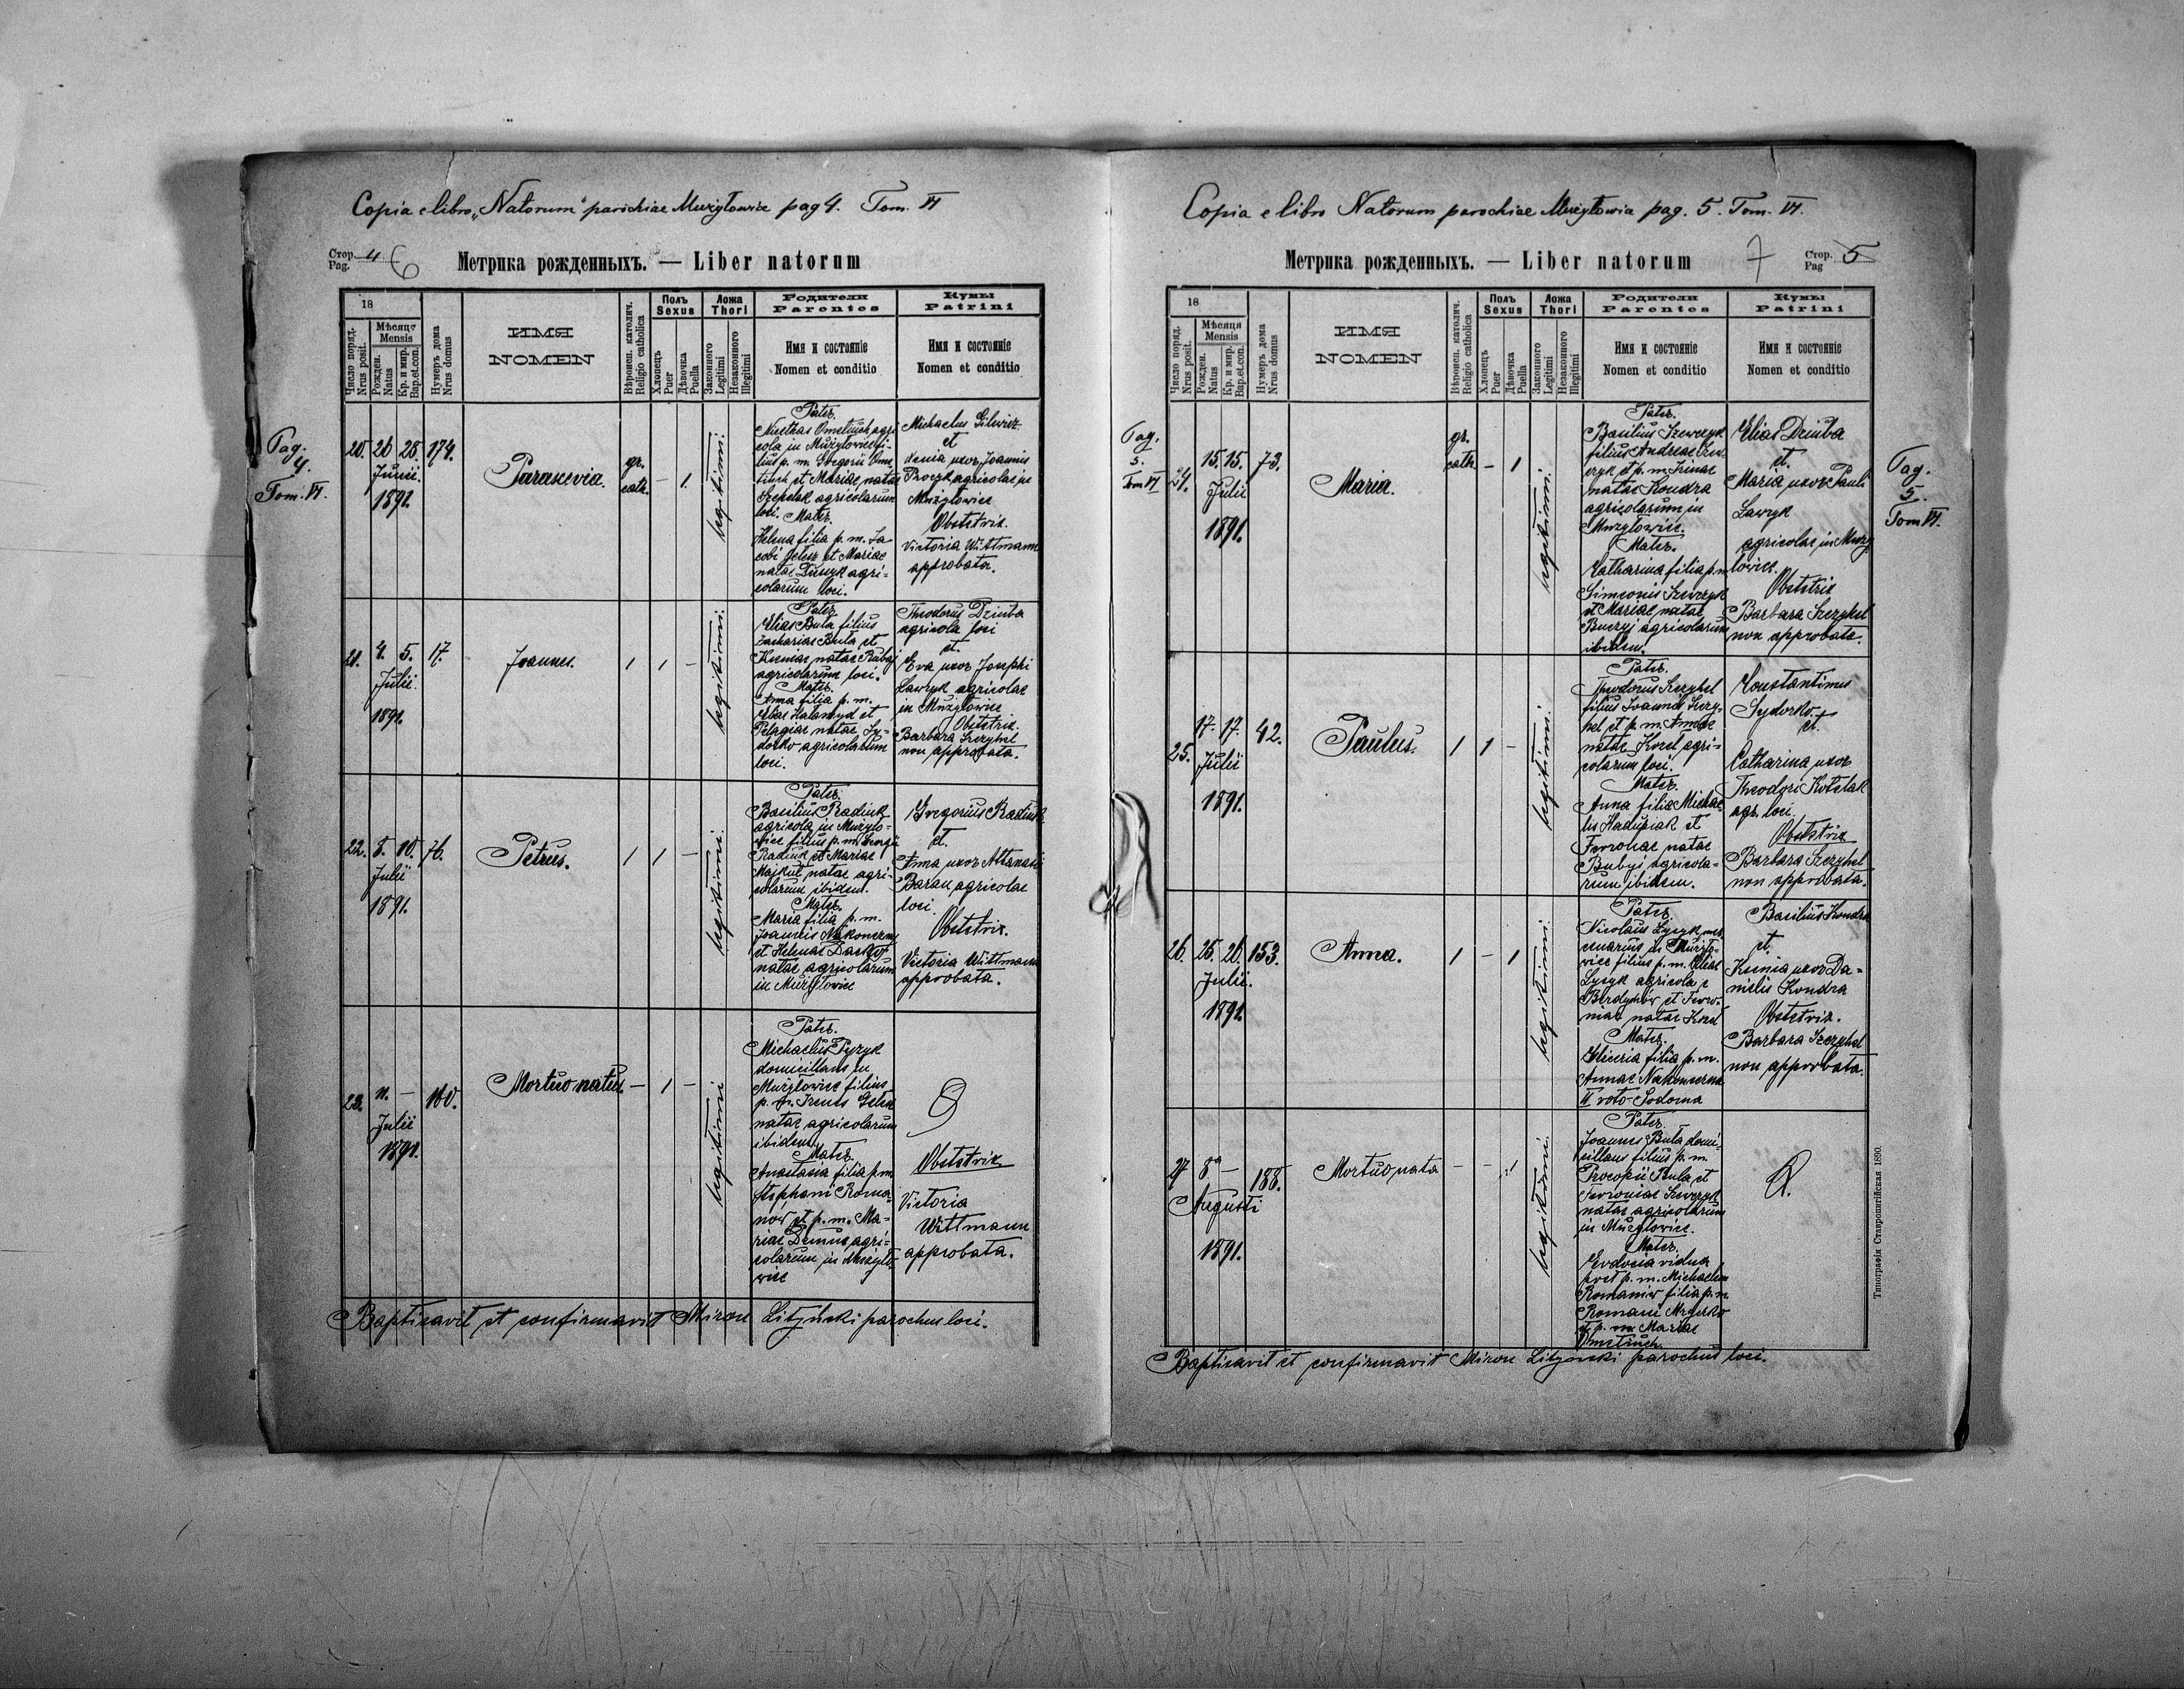 Copia e libro „Natorum“ parochiae Mużyłowice pag 4. Tom. VI
Стор. 4 6
Pag.
Метрика рожденныхъ. — Liber natorum
18
Число поряд.
Nrus posit.
Мѣсяце
Mensis
Рожден.
Natus
Кр. и мир.
Bap.et.con.
Нумеръ дома
Nrus domus
ИМЯ
NOMEN
Вѣроисп. католич.
Religio catholica
Полъ
Sexus
Хлопецъ
Puer
Дѣвочка
Puella
Ложа
Thori
Законного
Legitimi
Незаконного
Illegitimi
Родители
Parentes
Имя и состояніе
Nomen et conditio
Кумы
Patrini
Имя и состояніе
Nomen et conditio
Pag.
4.
Tom. VI.
20. 26 28. 174.
Junii.
1891.
Parascevia.
gr.
cath.
– 1
legitimi.
Pater.
Nicetas Ometiuch agri
cola in Mużyłowice fi-
lius p. m. Gregorii Ome
tiuch et Mariae natae
Szepelak agricolarum
loci. Mater.
Helena filia p. m. Ja
cobi Gelesz et Mariae
natae agri=
colarum loci.
Michaelus
et
uxor Joannis
agricolae in
Mużyłowice
Obstetrix.
Victoria Wittmann
approbata.
21. 4. 5. 17.
Julii.
1891.
Joannes.
1 1 –
legitimi.
Pater.
Elias Buła filius
Zachariae Buła et
Kseniae natae Bubyj
agricolarum loci.
Mater.
Anna filia p. m.
Eliae et
Pelagiae natae Sy-
dorko agricolarum
loci.
Theodorus Dziuba
agricola loci
et.
Eva uxor Josephi
Ławryk agricolae
in Mużyłowice
Obstetrix.
Barbara Szczyhel
non approbata.
22. 5. 10. 76.
Julii
1891.
Petrus.
1 1 –
legitimi.
Pater.
Basilius Radiuk
agricola in Mużyło-
wice filius p. m. Georgii
Radiuk et Mariae
Majkut natae agri-
colarum ibidem.
Mater.
Maria filia p. m.
Joannis Nakoneczny
et Helenae
natae agricolarum
in Mużyłowice
Gregorius Radiuk
et.
Anna uxor Attanasii
Baran agricolae
loci.
Obstetrix.
Victoria Wittmann
approbata.
23. 11. – 160.
Julii
1891.
Mortuo natus. – 1 –
legitimi
Pater.
Michaelus Pyzyk
domicillans in
Mużyłowice filius
p. m. Irenes
natae agricolarum
ibidem.
Mater.
Anastasia filia p. m.
Stephani Roma-
now et p. m. Ma-
riae Demus agri-
colarum in Mużyło-
wice
Obstetrix
Victoria
Wittmann
approbata.
Baptisavit et confirmavit Miron Lityński parochus loci.
Copia e libro Natorum parochiae Mużyłowice pag. 5. Tom. VI.
Метрика рожденныхъ. — Liber natorum
7 Стор. 5
Pag
18
Число поряд.
Nrus posit.
Мѣсяця
Mensis
Рожден.
Natus
Кр. и мир.
Bap.et.con.
Нумеръ дома
Nrus domus
ИМЯ
NOMEN
Вѣроисп. католич.
Religio catholica
Полъ
Sexus
Хлопецъ
Puer
Дѣвочка
Puella
Ложа
Thori
Законного
Legitimi
Незаконного
Illegitimi
Родители
Parentes
Имя и состояніе
Nomen et conditio
Кумы
Patrini
Имя и состояніе
Nomen et conditio
Pag.
5.
Tom VI
24. 15. 15. 73.
Julii
1891.
Maria.
gr.
cath. – 1
legitimi.
Pater.
Basilius Szewczyk
filius Andreae Szew-
czyk et p. m. Irinae
natae Kondra
agricolarum in
Mużyłowice.
Mater.
Catharina filia p. m.
Simeonis Szewczyk
et Mariae natae
agricolarum
ibidem.
Elias Dziuba
et.
Maria uxor Pauli
Ławryk
agricolae in Muży
łowice.
Obstetrix
Barbara Szczyhel
non approbata.
Pag.
5.
Tom VI.
25. 17. 17. 42.
Julii
1891.
Paulus.
1 1 –
legitimi.
Pater.
Theodorus Szczyhel
filius Joannis Szczy-
hel et p. m. Annae
natae Kozel agri-
colarum loci.
Mater.
Anna filia Michae
lis Hadupiak et
Fevroniae natae
Bubyj agricola-
rum ibidem.
Constantinus
Sydorko.
et.
Catharina uxor
Theodori Kotelak
agr. loci.
Obstetrix
Barbara Szczyhel
non approbata.
26. 25. 26. 153.
Julii.
1891.
Anna.
1 – 1
legitimi.
Pater.
Nicolaus Łysyk mer
cenarius in Mużyło-
wice filius p. m. Eliae
Łysyk agricola e
Berdychów et Fevro-
niae natae Kozel
Mater.
Gliceria filia p. m.
Annae Nakoneczna
II voto Sodoma
Basilius Kondra
et.
Ksenia uxor Da=
nielis Kondra
Obstetrix.
Barbara Szczyhel
non approbata.
27 8 – 188.
Augusti
1891.
Mortuo nata – – 1
legitimi.
Pater.
Joannes Buła domi-
cillans filius p. m.
Procopii Buła et
Fevroniae Szewczyk
natae agricolarum
in Mużyłowice.
Mater.
Evdocia vidua
post p. m. Michaelem
Romaniw filia p. m.
Romani
et p. m. Mariae
Ometiuch.
Baptisavit et confirmavit Miron Lityński parochus loci.
Типографія Ставропигійская 1890.